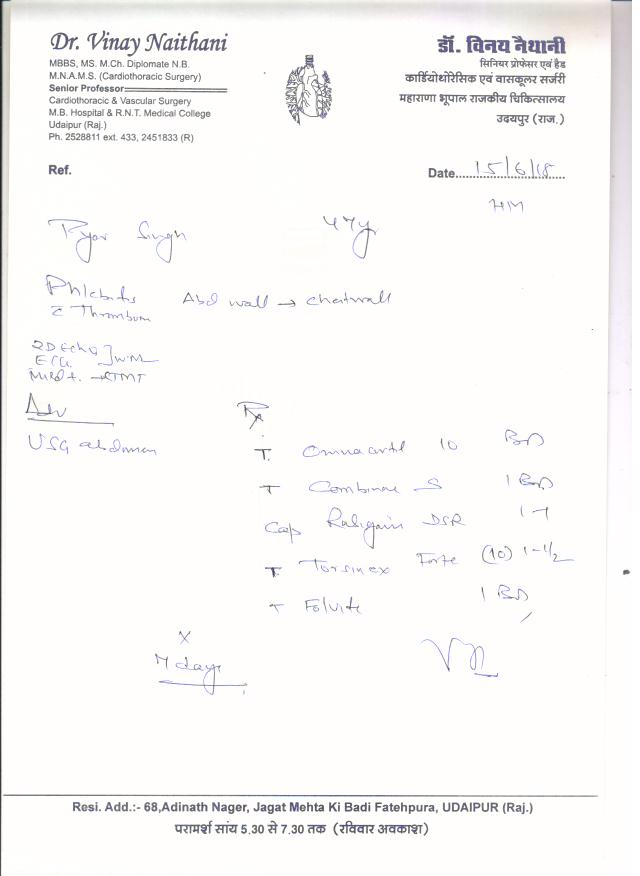 Dr. Vinay Naithani
MBBS, MS. M.Ch. Diplomate N.B.
M.N.A.M.S. (Cardiothoracic Surgery)
Senior Professor
Cardiothoracic & Vascular Surgery
M.B. Hospital & R.N.T. Medical College
Udaipur (Raj.)
Ph. 2528811 ext. 433, 2451833 (R)
डॉ. विनय नैथानी
सिनियर प्रोफेसर एवं हैड
कार्डियोथोरेसिक एवं वासकूलर सर्जरी
महाराणा भूपाल राजकीय चिकित्सालय
उदयपुर (राज.)
Ref.
Date 15/6/18
Singh 47y
Phlebitis Abd wall → Chestwall
c Thrombus
2D Echo
ECG
TMT
Adv
USG abdomen
Rx
T. 10 BD
T S 1 BD
Cap DSR 1-1
T Forte (10) 1-1/2
T Folvite 1 BD
x
7 days
VN
Resi. Add.:- 68,Adinath Nager, Jagat Mehta Ki Badi Fatehpura, UDAIPUR (Raj.)
परामर्श सांय 5.30 से 7.30 तक (रविवार अवकाश)